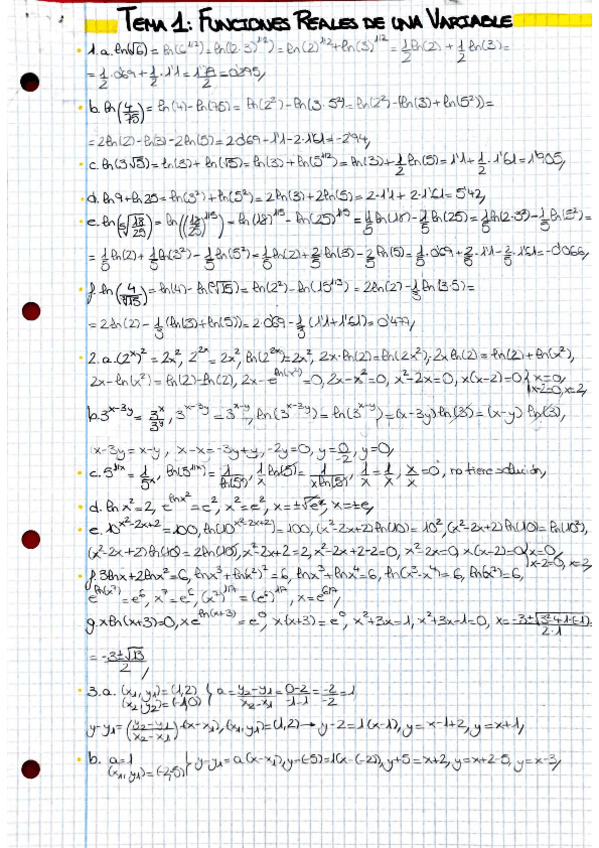 TEMA 1: FUNCIONES REALES DE UNA VARIABLE
1. a. ln(√6) = ln(6^1/2) = ln(2·3)^1/2 = ln(2)^1/2 + ln(3)^1/2 = 1/2 ln(2) + 1/2 ln(3) =
= 1/2 · 0'69 + 1/2 · 1'1 =
b. ln(4/75) = ln(4) - ln(75) = ln(2²) - ln(3·5²) = ln(2²) - (ln(3) + ln(5²)) =
= 2ln(2) - ln(3) - 2ln(5) = 2·0'69 - 1'1 - 2·1'61 = -2'94,
c. ln(3√5) = ln(3) + ln(√5) = ln(3) + ln(5^1/2) = ln(3) + 1/2 ln(5) = 1'1 + 1/2 · 1'61 = 1'905,
d. ln 9 + ln 25 = ln(3²) + ln(5²) = 2ln(3) + 2ln(5) = 2·1'1 + 2·1'61 = 5'42,
e. ln(5√18/25) = ln((18/25)^1/5) = ln(18)^1/5 - ln(25)^1/5 = 1/5 ln(18) - 1/5 ln(25) = 1/5 ln(2·3²) - 1/5 ln(5²) =
= 1/5 ln(2) + 1/5 ln(3²) - 1/5 ln(5²) = 1/5 ln(2) + 2/5 ln(3) - 2/5 ln(5) = 1/5 · 0'69 + 2/5 · 1'1 - 2/5 · 1'61 = -0'066,
f. ln(4/∛15) = ln(4) - ln(∛15) = ln(2²) - ln(15^1/3) = 2ln(2) - 1/3 ln(3·5) =
= 2ln(2) - 1/3 (ln(3) + ln(5)) = 2·0'69 - 1/3 (1'1 + 1'61) = 0'477,
2. a. (2^x)² = 2x², 2^2x = 2x², ln(2^2x) = 2x², 2x·ln(2) = ln(2x²), 2x ln(2) = ln(2) + ln(x²),
2x - ln(x²) = ln(2) - ln(2), 2x - e^ln(x²) = 0, 2x - x² = 0, x² - 2x = 0, x(x-2) = 0 { x = 0, x-2 = 0, x = 2,
b. 3^x-3y = 3^x/3^y, 3^x-3y = 3^x-y, ln(3^x-3y) = ln(3^x-y) = (x-3y) ln(3) = (x-y) ln(3),
x-3y = x-y, x-x = -3y+y, -2y = 0, y = 0/-2, y = 0,
c. 5^1/x = 1/5^x, ln(5^1/x) = 1/ln(5^x), 1/x ln(5) = 1/x ln(5), 1/x = 1/x, x/x = 0, no tiene solución,
d. ln x² = 2, e^ln x² = e², x² = e², x = ±√e², x = ±e,
e. 10^x²-2x+2 = 100, ln(10^x²-2x+2) = 100, (x²-2x+2) ln(10) = 10², (x²-2x+2) ln(10) = ln(10²),
(x²-2x+2) ln(10) = 2ln(10), x²-2x+2 = 2, x²-2x+2-2 = 0, x²-2x = 0, x(x-2) = 0 { x = 0, x-2 = 0, x = 2,
f. 3lnx + 2lnx² = 6, lnx³ + ln(x²)² = 6, lnx³ + lnx⁴ = 6, ln(x³·x⁴) = 6, ln(x⁷) = 6,
e^ln(x⁷) = e⁶, x⁷ = e⁶, (x⁷)^1/7 = (e⁶)^1/7, x = e^6/7,
g. x ln(x+3) = 0, x e^ln(x+3) = e⁰, x(x+3) = e⁰, x²+3x = 1, x²+3x-1 = 0, x =
= -3±√13/2,
3. a. (x₁, y₁) = (1, 2) (x₂, y₂) = (-1, 0) } a = y₂-y₁/x₂-x₁ = 0-2/-1-1 = -2/-2 = 1
y-y₁ = (y₂-y₁/x₂-x₁)·(x-x₁), (x₁, y₁) = (1, 2) → y-2 = 1(x-1), y = x-1+2, y = x+1,
b. a = 1 (x₁, y₁) = (-2, -5) } y-y₁ = a(x-x₁), y-(-5) = 1(x-(-2)), y+5 = x+2, y = x+2-5, y = x-3,